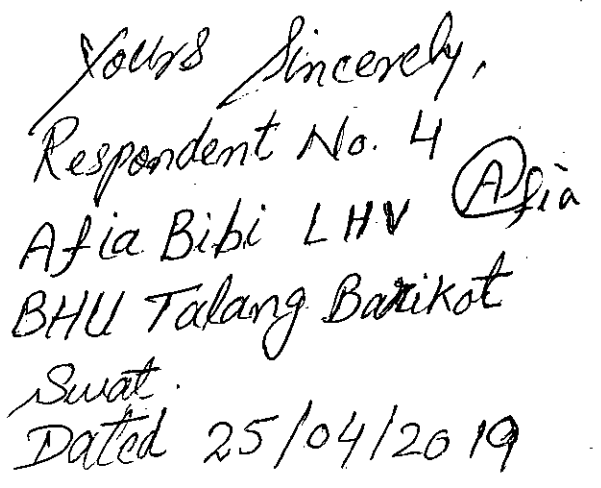 Yours Sincerely,
Respondent No. 4
Afia Bibi LHV Afia
BHU Talang Barikot
Swat.
Dated 25/04/2019